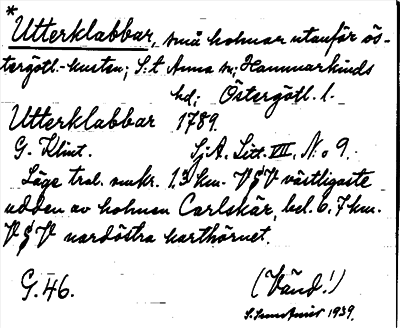 *
Utterklabbar, små holmar utanför ös-
tergötl.-kusten; S:t Anna sn; Hammarkinds
hd; Östergötl. l.
Utterklabbar 1789.
G. Klint. Sj.A. Litt. VII, N:o 9.
Läge tral. omkr. 1.3 km. V § V västligaste
udden av holmen Carlskär, bel. 6.7 km.
V § V nordöstra karthörnet.
G.46. (Vänd!)
1939.